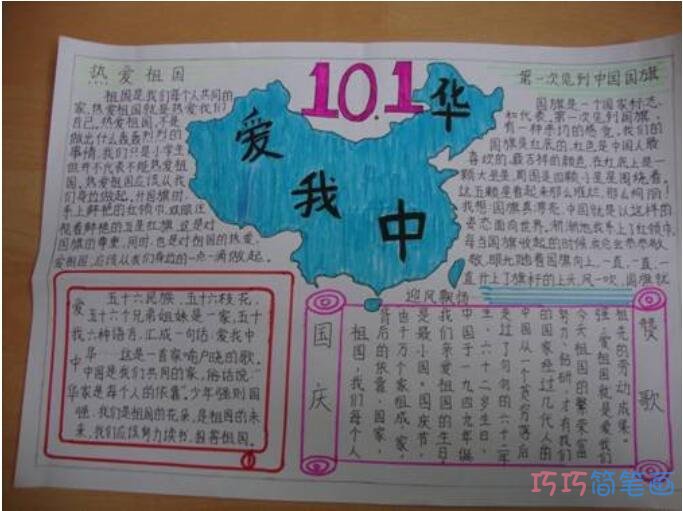 热爱祖国
祖国是我们每个人共同的
家，热爱祖国就是热爱我们
自己。热爱祖国，不是
做出什么轰轰烈烈的
事情，我们只是小学生
但并不代表不能热爱祖
国。热爱祖国应该从我
们身边做起，升国旗时，
手上鲜艳的红领巾，双眼注
视着鲜艳的五星红旗，这是对
国旗的尊重，同时，也是对祖国的热爱。
爱祖国，应该从我们身边的一点一滴做起。
10.1
爱我中华
第一次见到中国国旗
国旗是一个国家标志
和代表。第一次见到国旗，
有一种亲切的感觉，我们的
国旗是红底的，红色是中国人最
喜欢的，最吉祥的颜色，在红底上是一
颗大星星，周围是四颗小星星围绕着，
这五颗星看起来那么难烂，那么绚丽！
我想：国旗真漂亮，中国就是以这样的
姿态面向世界。渐渐地我手上了红领巾，
每当国旗收起的时候，我总会恭恭敬
敬，眼光随着国旗向上，一直，一直，一
直升上了旗杆的上天，风一吹，国旗就
迎风飘扬
爱我中华
五十六民族，五十六枝花，
五十六个兄弟姐妹是一家，五十
六种语言，汇成一句话：爱我中
华……这是一首家喻户晓的歌。
中国是我们共同的家，俗话说：“
家是每个人的依靠”，少年强则国
强，我们是祖国的花朵，是祖国的未
来，我们应该努力读书，报答祖国。
国庆
赞歌
祖先的劳动成果。
强，爱祖国就是爱我们
今天祖国的繁荣富
努力、钻研，才有我们
的国家经过几代人的
中国从一个贫穷落后
是过了匀匀的六十二年
生，六十二岁生日，
中国于一九四九年诞
我们亲爱祖国的生日
是最小国。国庆节，
由千万个家组成家，
背后的依靠，国家，
祖国，我们每个人
巧巧简笔画